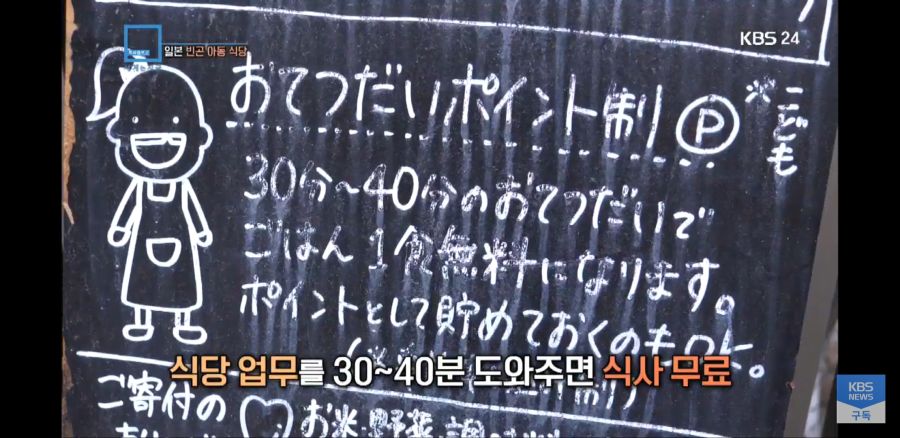 KBS 24
일본 빈곤 아동 식당
おてつだいポイント制 Ⓟ
※こども
30分～40分のおてつだいで
ごはん1食無料になります。
ポイントとして貯めておくのもOK。
식당 업무를 30~40분 도와주면 식사 무료
ご寄付の
お米、野菜、調
KBS
NEWS
구독